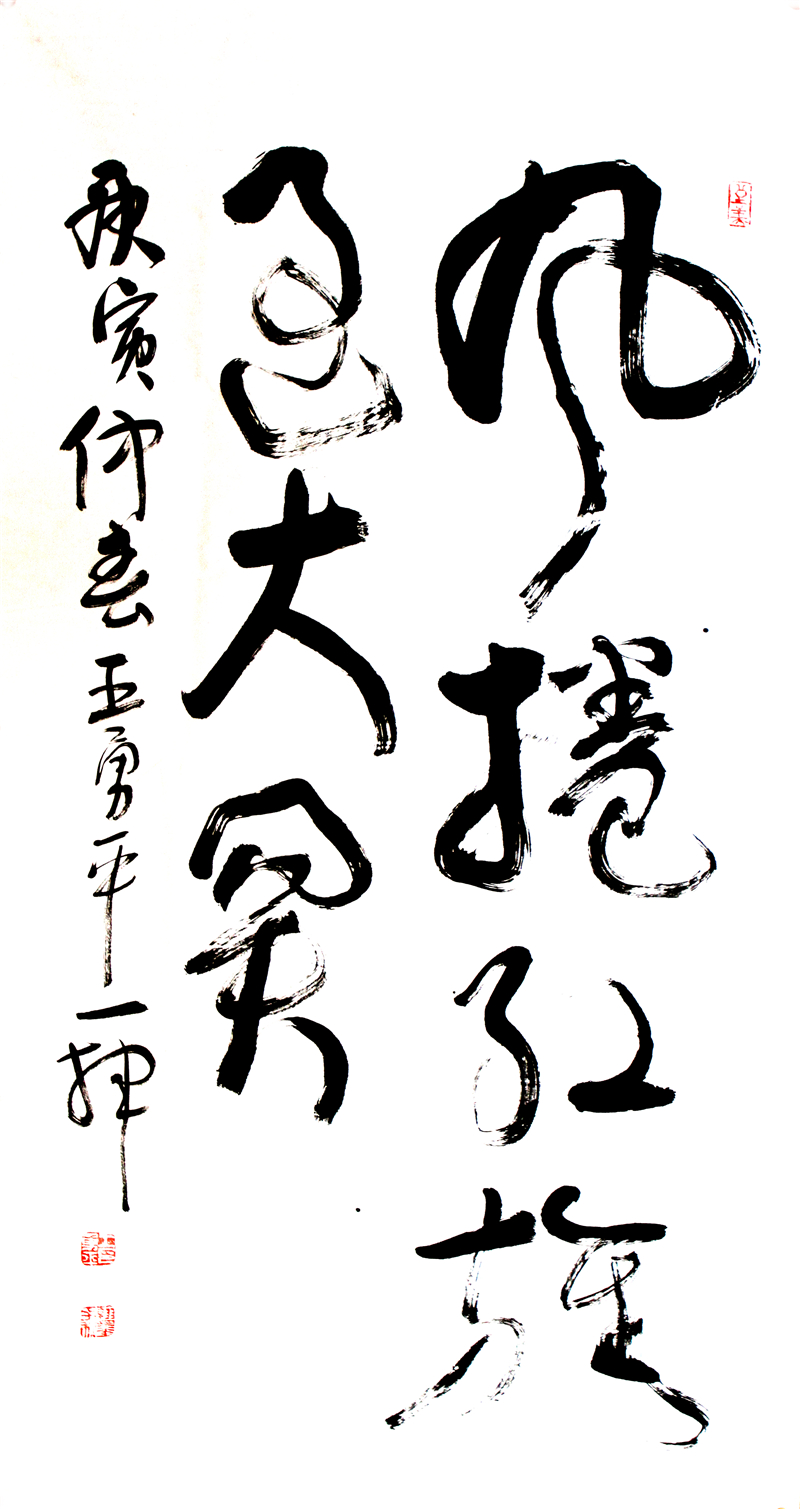 风捲红旗
过大关
庚寅仲春王勇平一挥